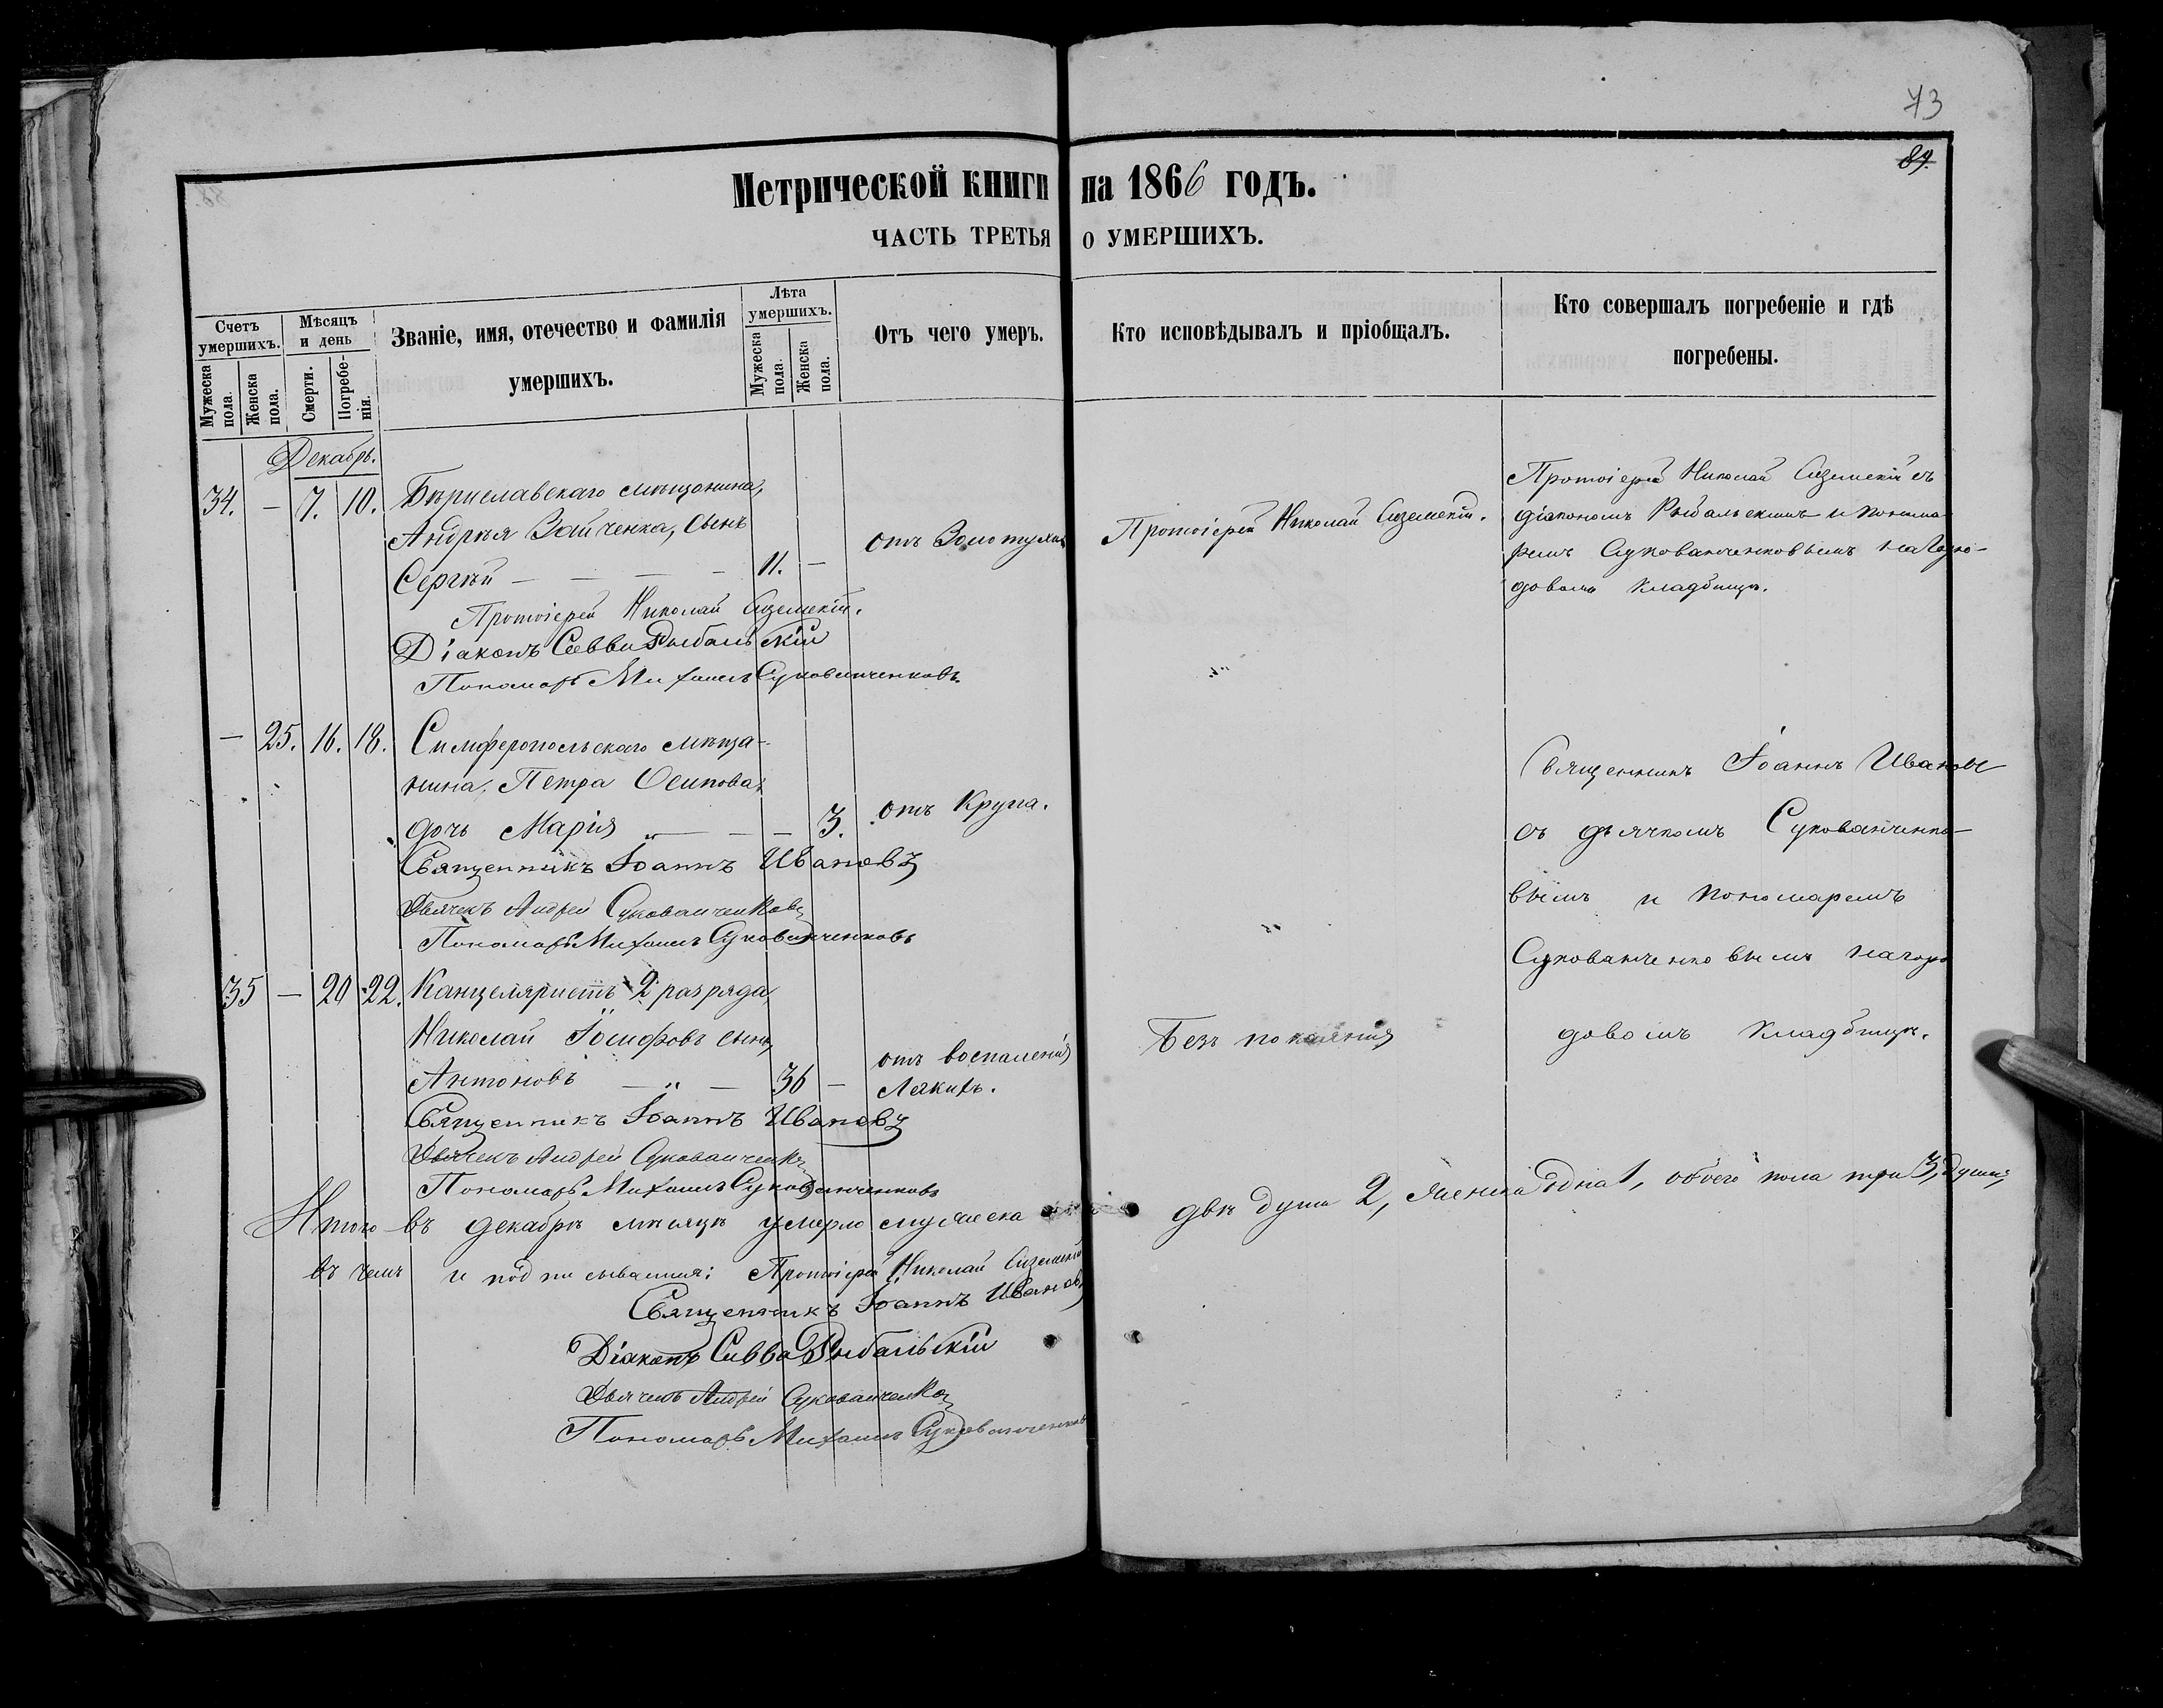 73
89.
Метрической книги на 1866 годъ.
ЧАСТЬ ТРЕТЬЯ О УМЕРШИХЪ.
Счетъ умершихъ.
Мужеска пола.
Женска пола.
Мѣсяцъ и день
Смерти.
Погребенія.
Званіе, имя, отечество и фамилія
умершихъ.
Лѣта умершихъ.
Мужеска пола.
Женска пола.
Отъ чего умеръ.
Кто исповѣдывалъ и пріобщалъ.
Кто совершалъ погребеніе и гдѣ
погребены.
Декабрь.
34. — 7. 10. Бѣриславскаго мѣщанина,
Андрѣя Зайченка, сынъ
Сергѣй — — — — 11. —
отъ Золотухи
Протоіерей Николай
Протоіерей Николай съ
діакономъ Рыбальскимъ и понома-
ремъ Сукованченковымъ на Горо-
довомъ кладбищѣ.
Протоіерей Николай
Діаконъ Савва Рыбальскій
Пономарь Михаилъ Сукованченковъ
— 25. 16. 18. Симферопольскаго мѣща-
нина, Петра Осипова,
дочь Марія — — — 3. отъ Крупа.
Священникъ Іоаннъ Ивановъ
съ дьячкомъ Сукованченко-
вымъ и пономаремъ
Сукованченковымъ на горо-
довомъ кладбищѣ.
Священникъ Іоаннъ Ивановъ
Дьячекъ Андрей Сукованченковъ
Пономарь Михаилъ Сукованченковъ
35 — 20 22. Канцеляристъ 2 разряда,
Николай Іосифовъ сынъ,
Антоновъ — „ — 36 —
отъ воспаленія
Легкихъ.
Безъ покаянія
Священникъ Іоаннъ Ивановъ
Дьячекъ Андрей Сукованченковъ
Пономарь Михаилъ Сукованченковъ
Итого въ декабрѣ мѣсяцѣ умерло мужеска двѣ души 2, женска одна 1, обоего пола три 3, души,
въ чемъ и подписываемся: Протоіерей Николай
Священникъ Іоаннъ Ивановъ
Діаконъ Савва Рыбальскій
Дьячекъ Андрей Сукованченковъ
Пономарь Михаилъ Сукованченковъ